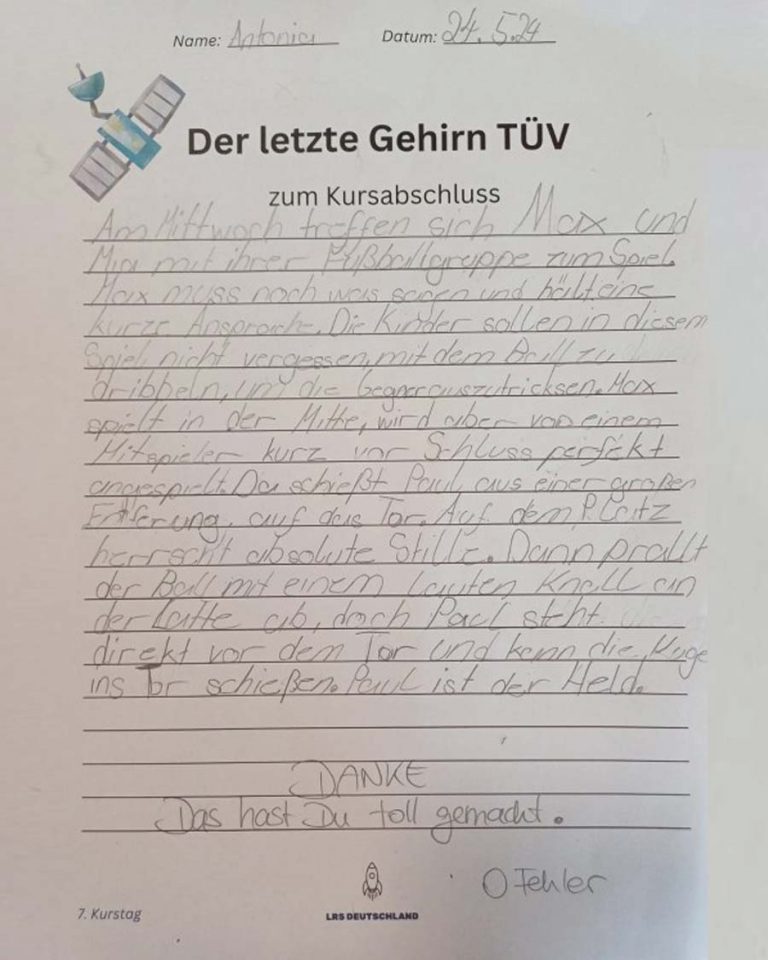 Name: Antonia Datum: 24.5.24
Der letzte Gehirn TÜV
zum Kursabschluss
Am Mittwoch treffen sich Max und
Mia mit ihrer Fußballgruppe zum Spiel.
Max muss noch was sagen und hält eine
kurze Ansprache. Die Kinder sollen in diesem
Spiel nicht vergessen, mit dem Ball zu
dribbeln, um die Gegner auszutricksen. Max
spielt in der Mitte, wird aber von einem
Mitspieler kurz vor Schluss perfekt
angespielt. Da schießt Paul aus einer großen
Entferung, auf das Tor. Auf dem Platz
herrscht absolute Stille. Dann prallt
der Ball mit einem lauten Knall an
der Latte ab, doch Paul steht
direkt vor dem Tor und kann die Kuge
ins Tor schießen. Paul ist der Held.
DANKE
Das hast Du toll gemacht.
0 Fehler
7. Kurstag
LRS DEUTSCHLAND